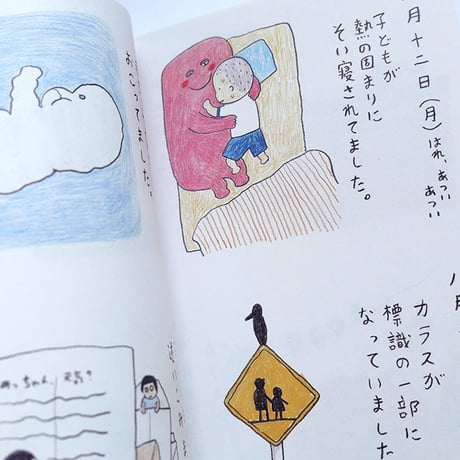 月十二日(月)
はれ、あつい
あつい
子どもが
熱の固まりに
そい寝されてました。
カラスが
標識の一部に
なっていました
おこってました。